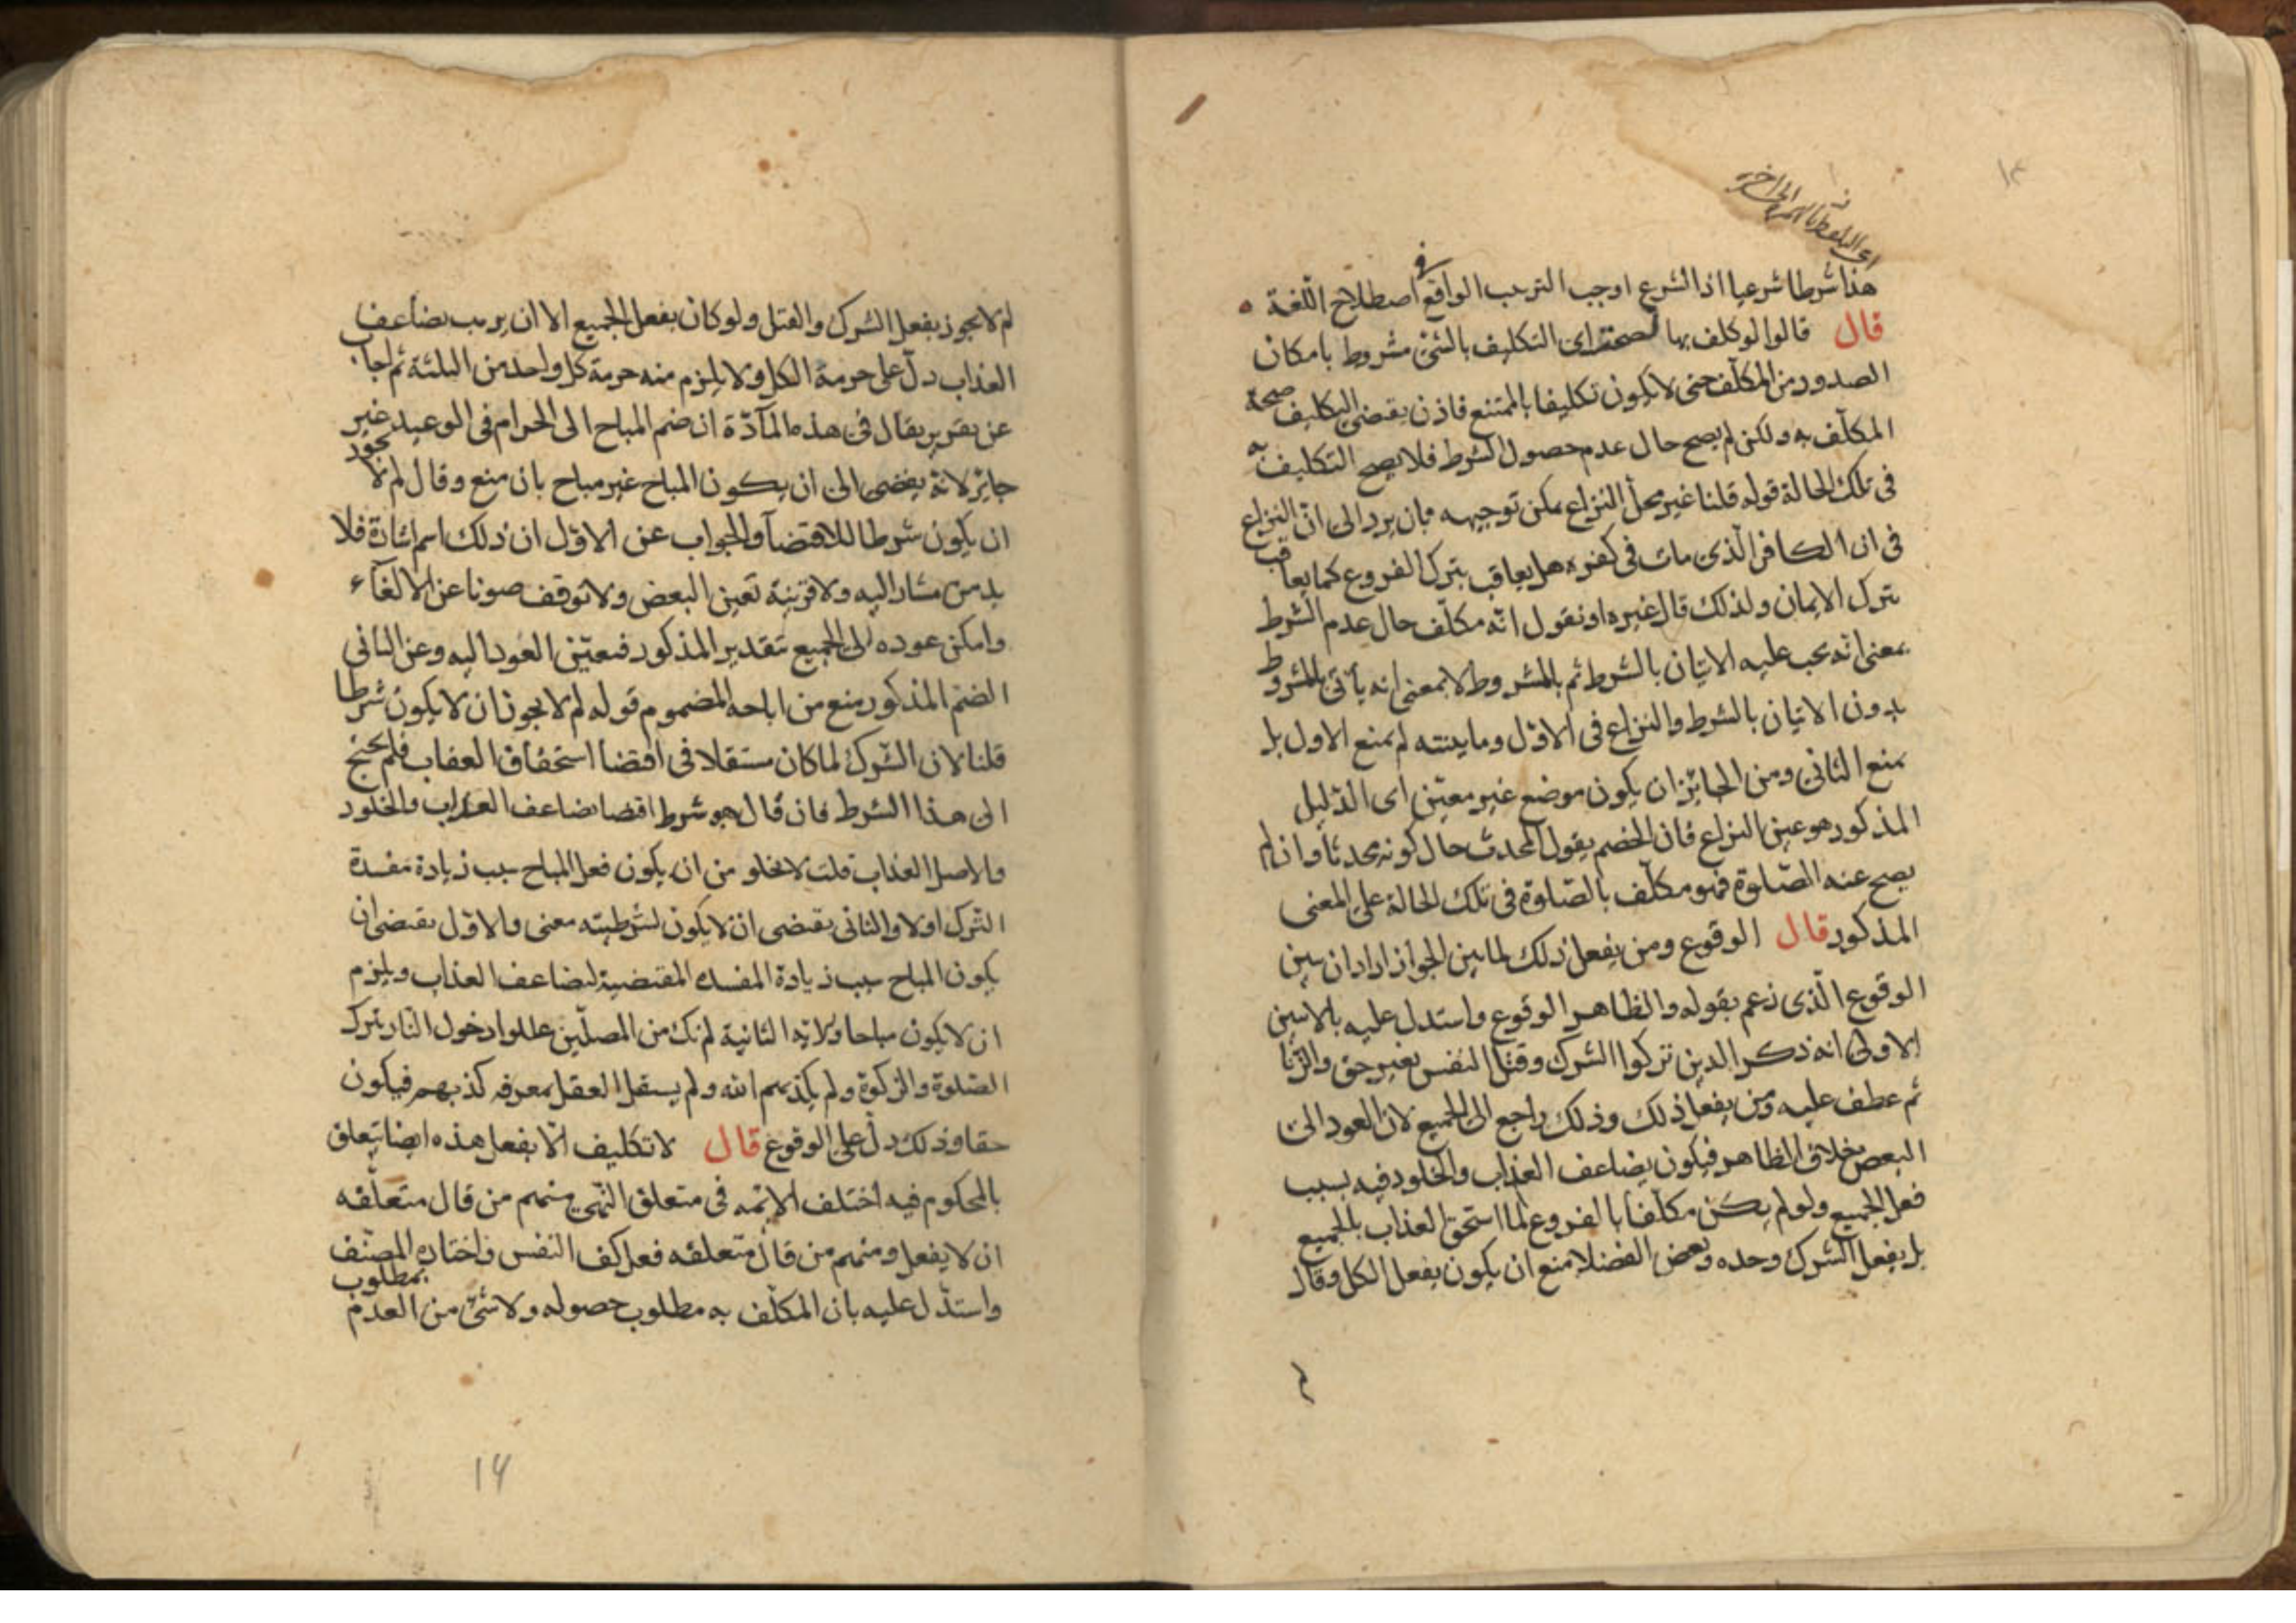 هذا شرطا شرعيا اذ الشرع اوجب الترتيب الواقع في اصطلاح اللغة
قال قالوا لو كلف بها لصحت اى التكليف بالشئ مشروط بامكان
الصدور من المكلف حتى لا يكون تكليفا بالممتنع فاذن يقتضى التكليف صحة
المكلف به ولكن لم يصح حال عدم حصول الشرط فلا يصح التكليف به
فى تلك الحالة قوله قلنا غير محل النزاع يمكن توجيهه بان يرد الى ان النزاع
فى ان الكافر الذى مات فى كفره هل يعاقب بترك الفروع كما يعاقب
بترك الايمان ولذلك قال غيره او نقول انه مكلف حال عدم الشرط
بمعنى انه يجب عليه الاتيان بالشرط ثم بالمشروط لا بمعنى انه يأتى بالمشروط
بدون الاتيان بالشرط والنزاع فى الاول وما بينته لم يمنع الاول بل
يمنع الثانى ومن الجائز ان يكون موضع غير معين اى الدليل
المذكور هو عين النزاع فان الخصم يقول المحدث حال كونه محدثا وان لم
يصح عنه الصلوة فهو مكلف بالصلوة فى تلك الحالة على المعنى
المذكور قال الوقوع ومن يفعل ذلك لما بين الجواز اراد ان يبين
الوقوع الذى زعم بقوله والظاهر الوقوع واستدل عليه بالايتين
الاولى انه ذكر الدين تركوا الشرك وقتل النفس بغير حق والزنا
ثم عطف عليه ومن يفعل ذلك وذلك راجع الى الجميع لان العود الى
البعض بخلاف الظاهر فيكون يضاعف العذاب والخلود فيه بسبب
فعل الجميع ولو لم يكن مكلفا بالفروع لما استحق العذاب بالجميع
بل بفعل الشرك وحده وبعض الفضلا منع ان يكون بفعل الكل وقال
لم لا يجوز بفعل الشرك والقتل ولو كان بفعل الجميع الا ان يرتب يضاعف
العذاب دل على حرمة الكل ولا يلزم منه حرمة كل واحد من الثلثة ثم اجاب
عن تقرير يقال فى هذه المآدة ان ضم المباح الى الحرام فى الوعيد غير
جايز لانه يفضى الى ان يكون المباح غير مباح بان منع وقال لم لا يجوز
ان يكون شرطا للاقتضآ والجواب عن الاول ان ذلك اسم اشارة فلا
بد من مشار اليه ولا قرينة تعين البعض ولا توقف صونا عن الالغآء
وامكن عوده الى الجميع بتقدير المذكور فتعين العود اليه وعن الثانى
الضم المذكور منع من اباحه المضموم قوله لم لا يجوز ان لا يكون شرطا
قلنا لان الشرك لما كان مستقلا فى اقتضا استحقاق العقاب فلم يحتج
الى هذا الشرط فان قال هو شرط اقتضا تضاعف العذاب والخلود
والاصل العذاب قلت لا يخلو من ان يكون فعل المباح سبب زيادة مفسدة
الشرك او لا والثانى يقتضى ان لا يكون لشرطيته معنى والاول يقتضى ان
يكون المباح سبب زيادة المفسده المقتضية لتضاعف العذاب ويلزم
ان لا يكون مباحا ولاية الثانية لم نك من المصلين عللوا دخول النار بترك
الصلوة والزكوة ولم يكذبهم الله ولم يستقل العقل بمعرفه كذبهم فيكون
حقا وذلك دل على الوقوع قال لا تكليف الا بفعل هذه ايضا يتعلق
بالمحكوم فيه اختلف الائمه فى متعلق النهى منهم من قال متعلقه
ان لا يفعل ومنهم من قال متعلقه فعل كف النفس واختاره المصنف
واستدل عليه بان المكلف به مطلوب حصوله ولا شئ من العدم بمطلوب
١٤